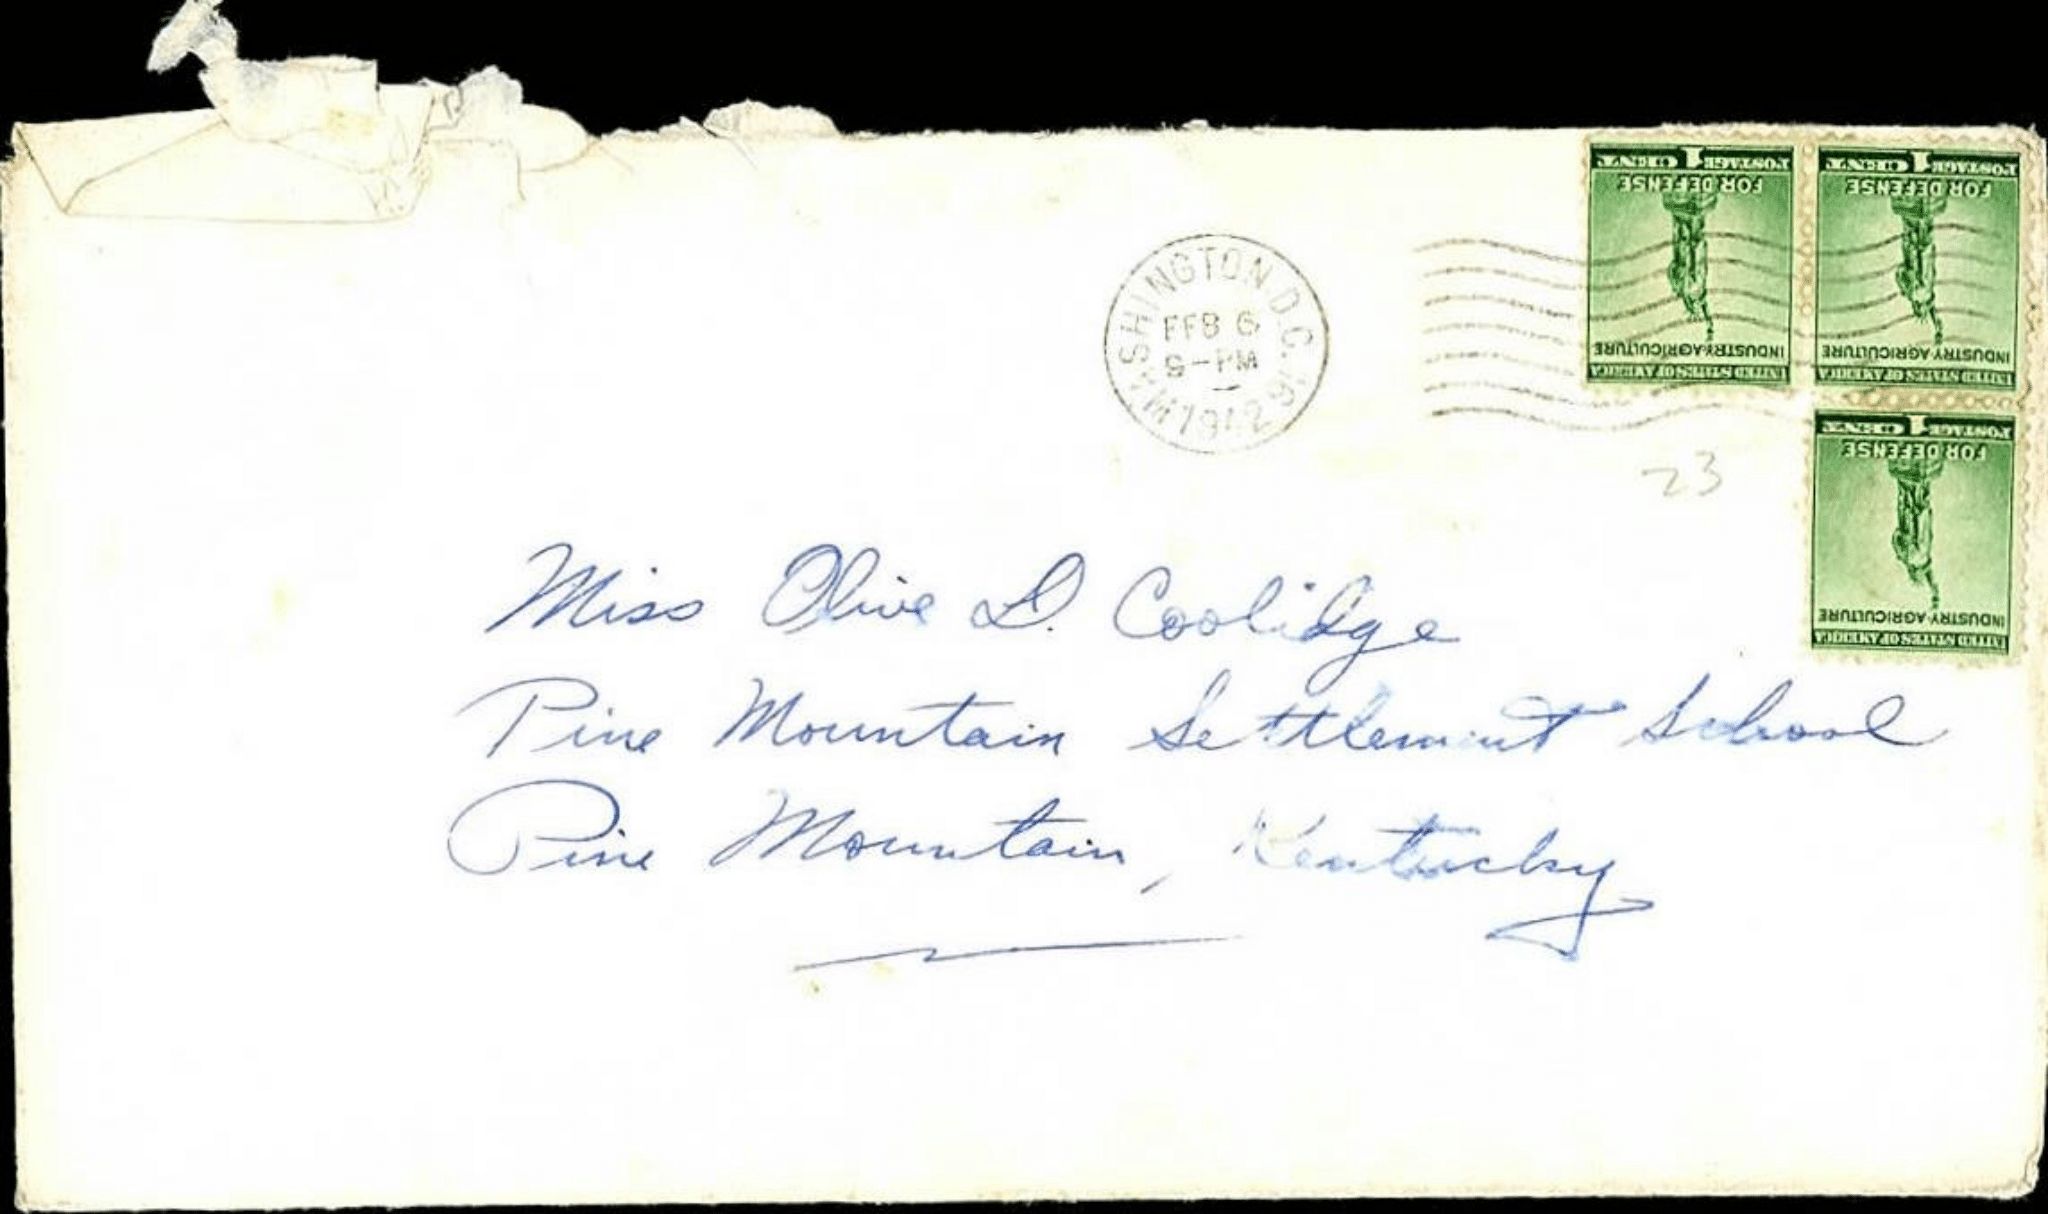 WASHINGTON, D.C. 
FEB 6
9-PM
1942
1 CENT POSTAGE
FOR DEFENSE
INDUSTRY·AGRICULTURE
UNITED STATES OF AMERICA
1 CENT POSTAGE
FOR DEFENSE
INDUSTRY·AGRICULTURE
UNITED STATES OF AMERICA
23
1 CENT POSTAGE
FOR DEFENSE
INDUSTRY·AGRICULTURE
UNITED STATES OF AMERICA
Miss Olive D. Coolidge
Pine Mountain Settlement School
Pine Mountain, Kentucky